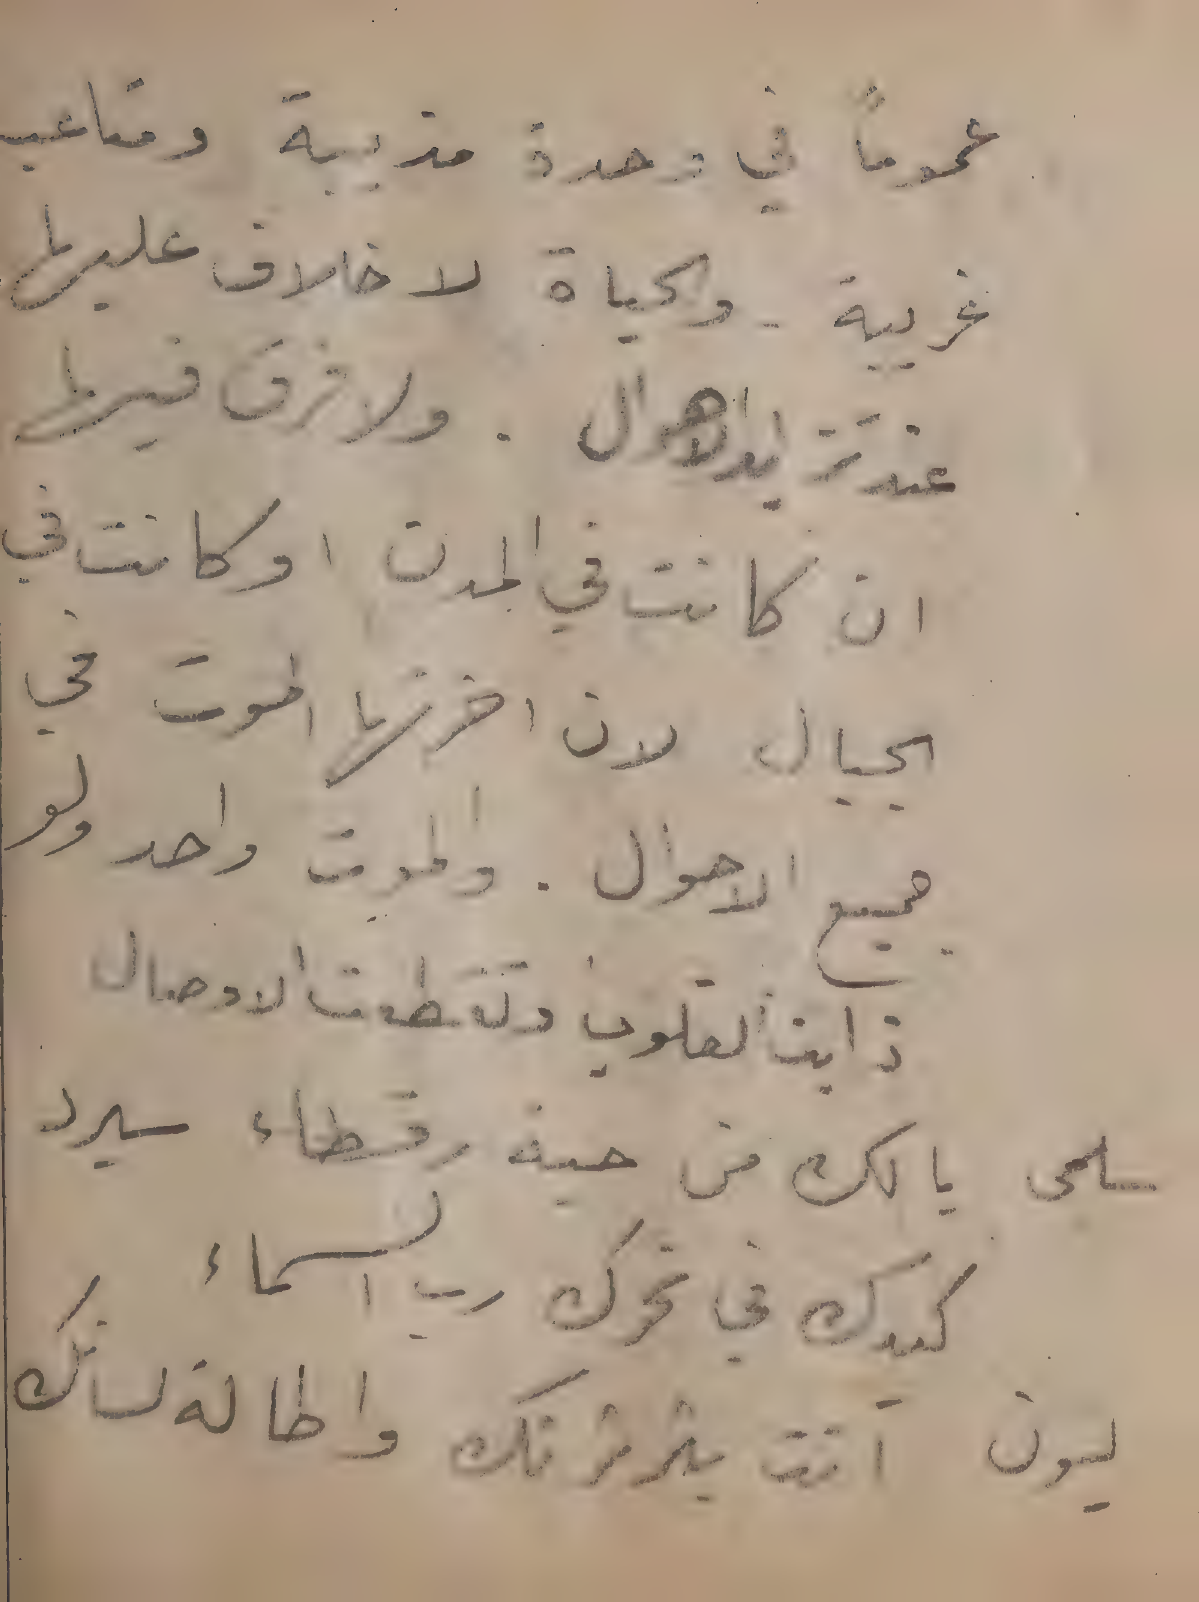 عموماً في وحدة مذيبة ومتاعب
غريبة - والحياة لا خلاف عليها
عند تزايد الاهوال . ولا فرق فيها
ان كانت في المدن او كانت في
الجبال لان اخرتها الموت في
جميع الاحوال . والموت واحد ولو
ذابت القلوب وتقطعت الاوصال
سلمى يا لك من حية رقطاء سيرد
كيدك في نحرك رب السماء
ليون أنت بثرثرتك واطالة لسانك